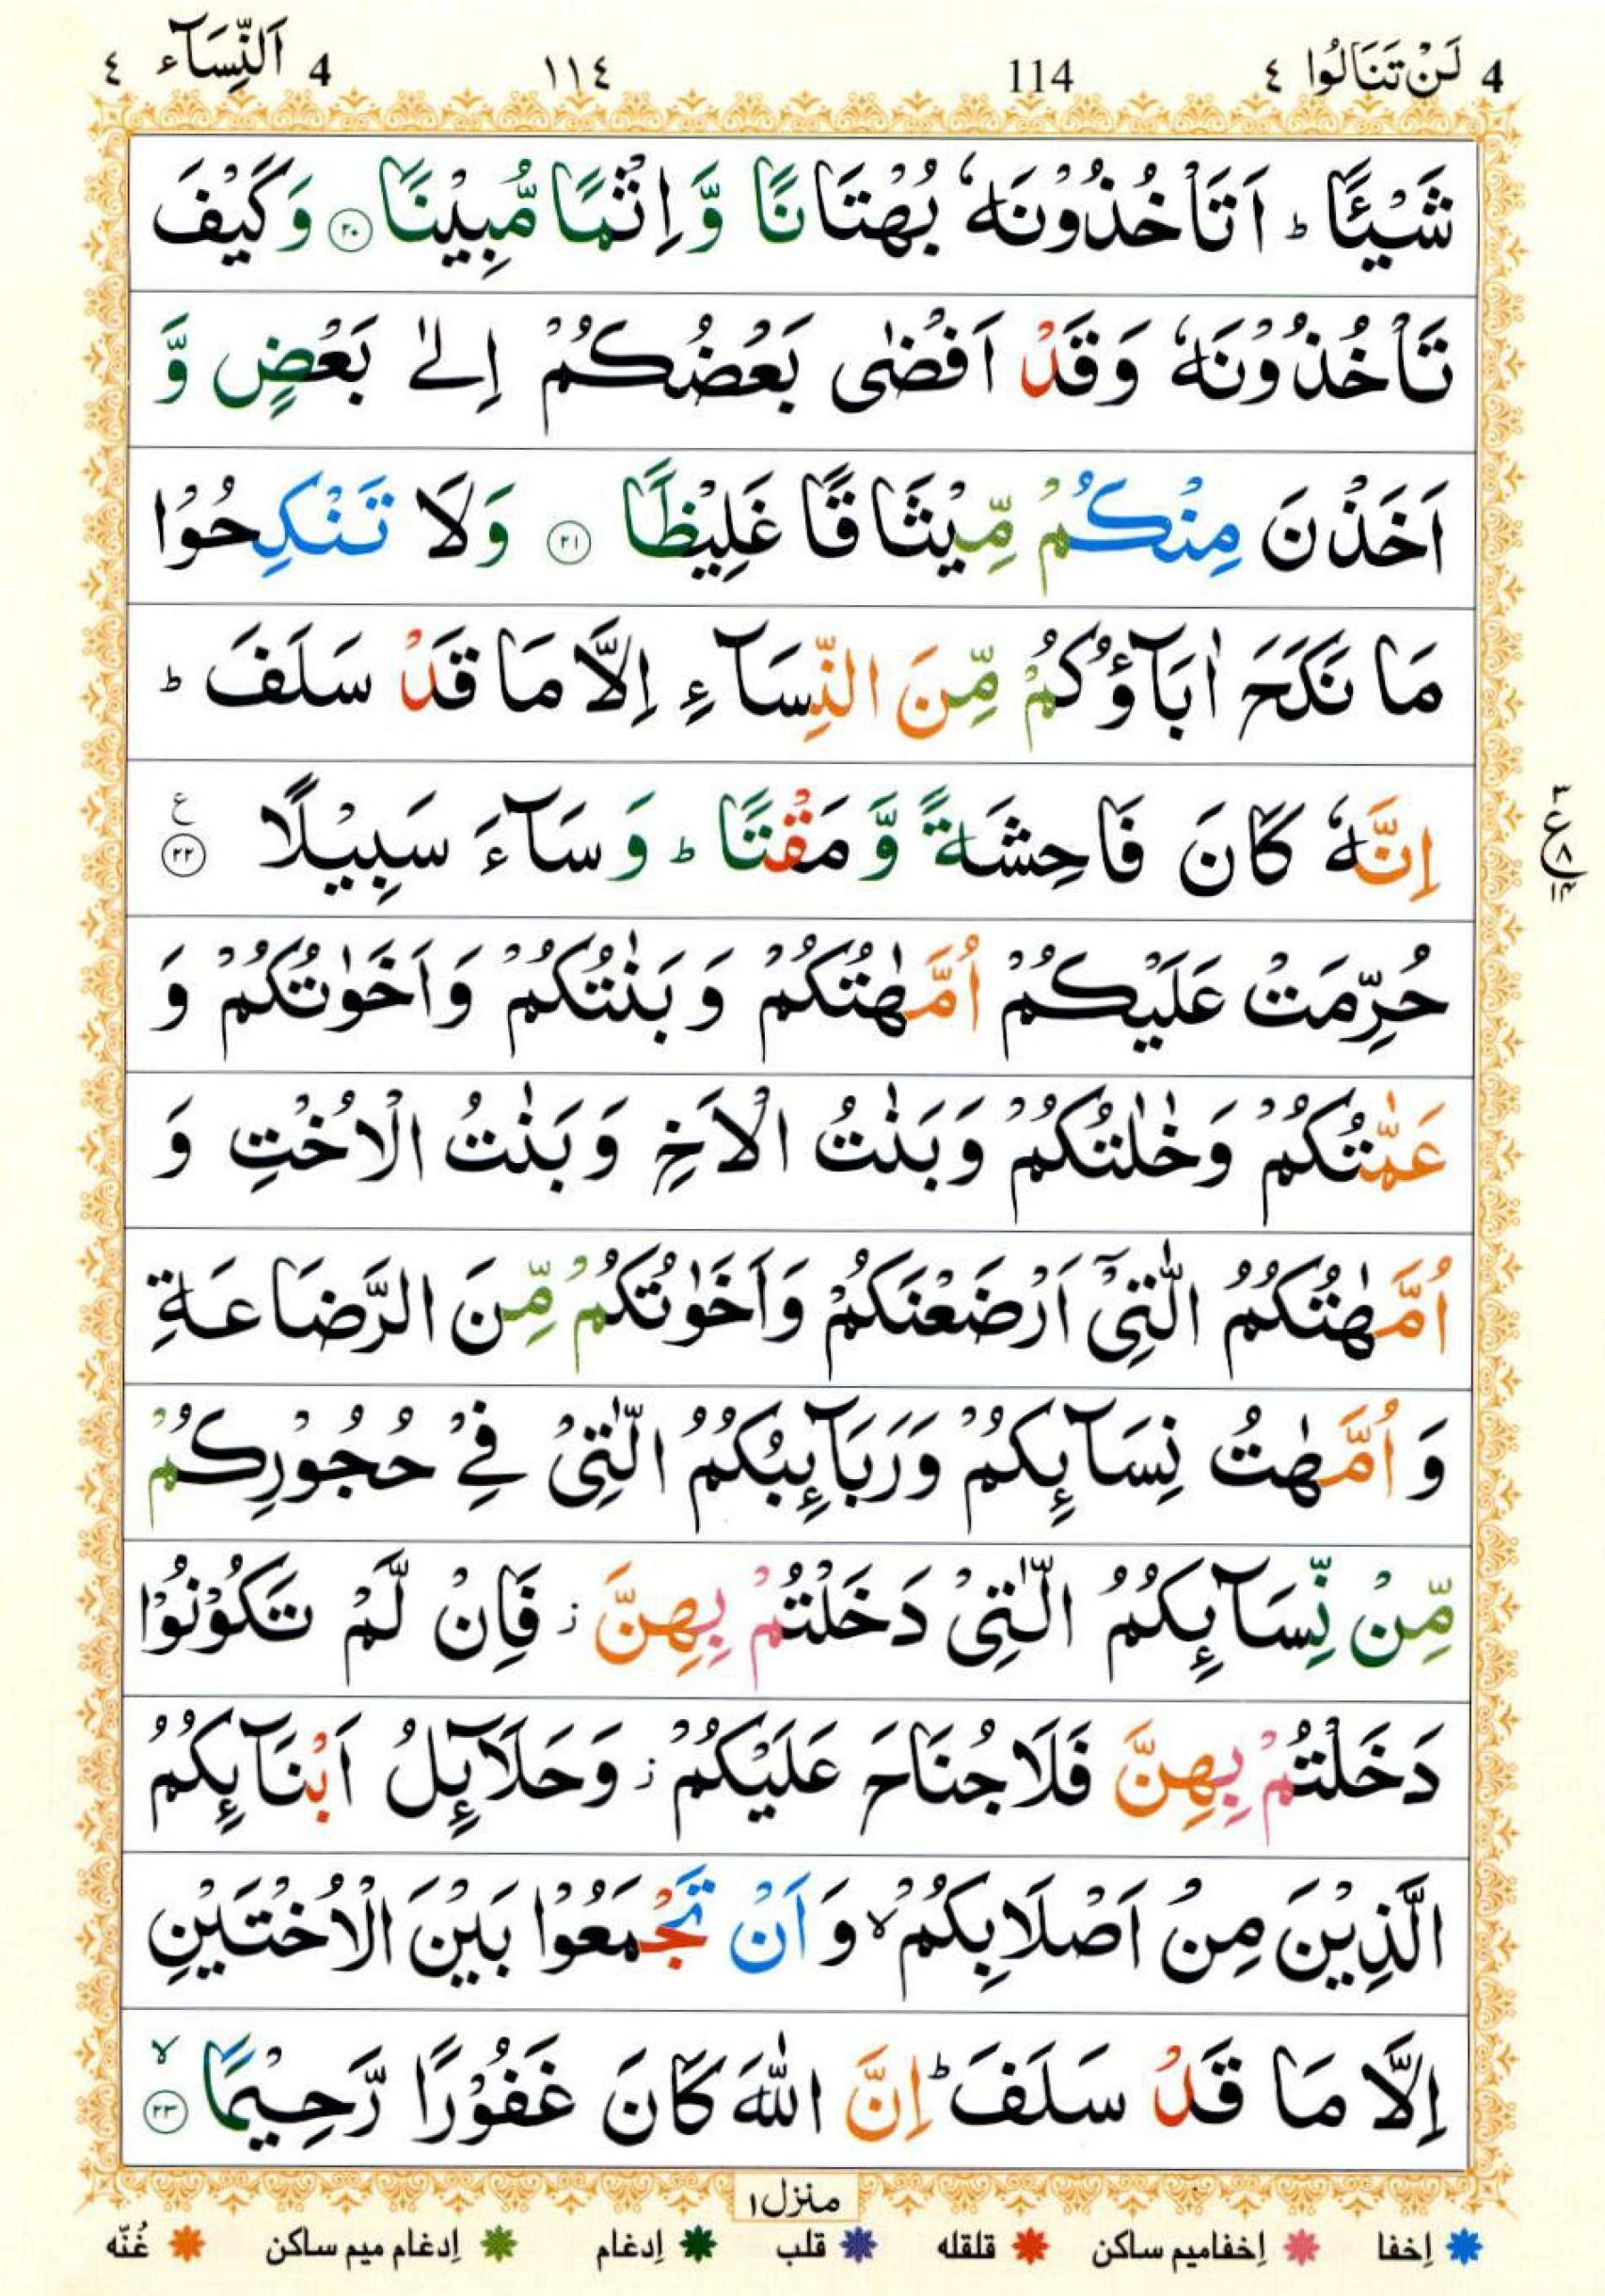 4 لَنْ تَنَالُوا ٤ 114 ١١٤ 4 اَلنِّسَآء ٤
شَيْـًٔا ؕ اَتَاْخُذُوْنَهٗ بُهْتَانًا وَّ اِثْمًا مُّبِيْنًا ۲۰ وَ كَيْفَ
تَاْخُذُوْنَهٗ وَقَدْ اَفْضٰى بَعْضُكُمْ اِلٰى بَعْضٍ وَّ
اَخَذْنَ مِنْكُمْ مِّيْثَاقًا غَلِيْظًا ۲۱ وَلَا تَنْكِحُوْا
مَا نَكَحَ اٰبَآؤُكُمْ مِّنَ النِّسَآءِ اِلَّا مَا قَدْ سَلَفَ ؕ
اِنَّهٗ كَانَ فَاحِشَةً وَّ مَقْتًا ؕ وَ سَآءَ سَبِيْلًا ۲۲ ع
حُرِّمَتْ عَلَيْكُمْ اُمَّهٰتُكُمْ وَ بَنٰتُكُمْ وَاَخَوٰتُكُمْ وَ
عَمّٰتُكُمْ وَخٰلٰتُكُمْ وَبَنٰتُ الْاَخِ وَبَنٰتُ الْاُخْتِ وَ
اُمَّهٰتُكُمُ الّٰتِيْۤ اَرْضَعْنَكُمْ وَاَخَوٰتُكُمْ مِّنَ الرَّضَاعَةِ
وَ اُمَّهٰتُ نِسَآىِٕكُمْ وَرَبَآىِٕبُكُمُ الّٰتِيْ فِيْ حُجُوْرِكُمْ
مِّنْ نِّسَآىِٕكُمُ الّٰتِيْ دَخَلْتُمْ بِهِنَّ ز فَاِنْ لَّمْ تَكُوْنُوْا
دَخَلْتُمْ بِهِنَّ فَلَا جُنَاحَ عَلَيْكُمْ ز وَحَلَآىِٕلُ اَبْنَآىِٕكُمُ
الَّذِيْنَ مِنْ اَصْلَابِكُمْ ۙ وَ اَنْ تَجْمَعُوْا بَيْنَ الْاُخْتَيْنِ
اِلَّا مَا قَدْ سَلَفَ ؕ اِنَّ اللّٰهَ كَانَ غَفُوْرًا رَّحِيْمًا ۙ ۲۳
منزل ۱
إخفا إخفا ميم ساكن قلقله قلب إدغام إدغام ميم ساكن غُنّه